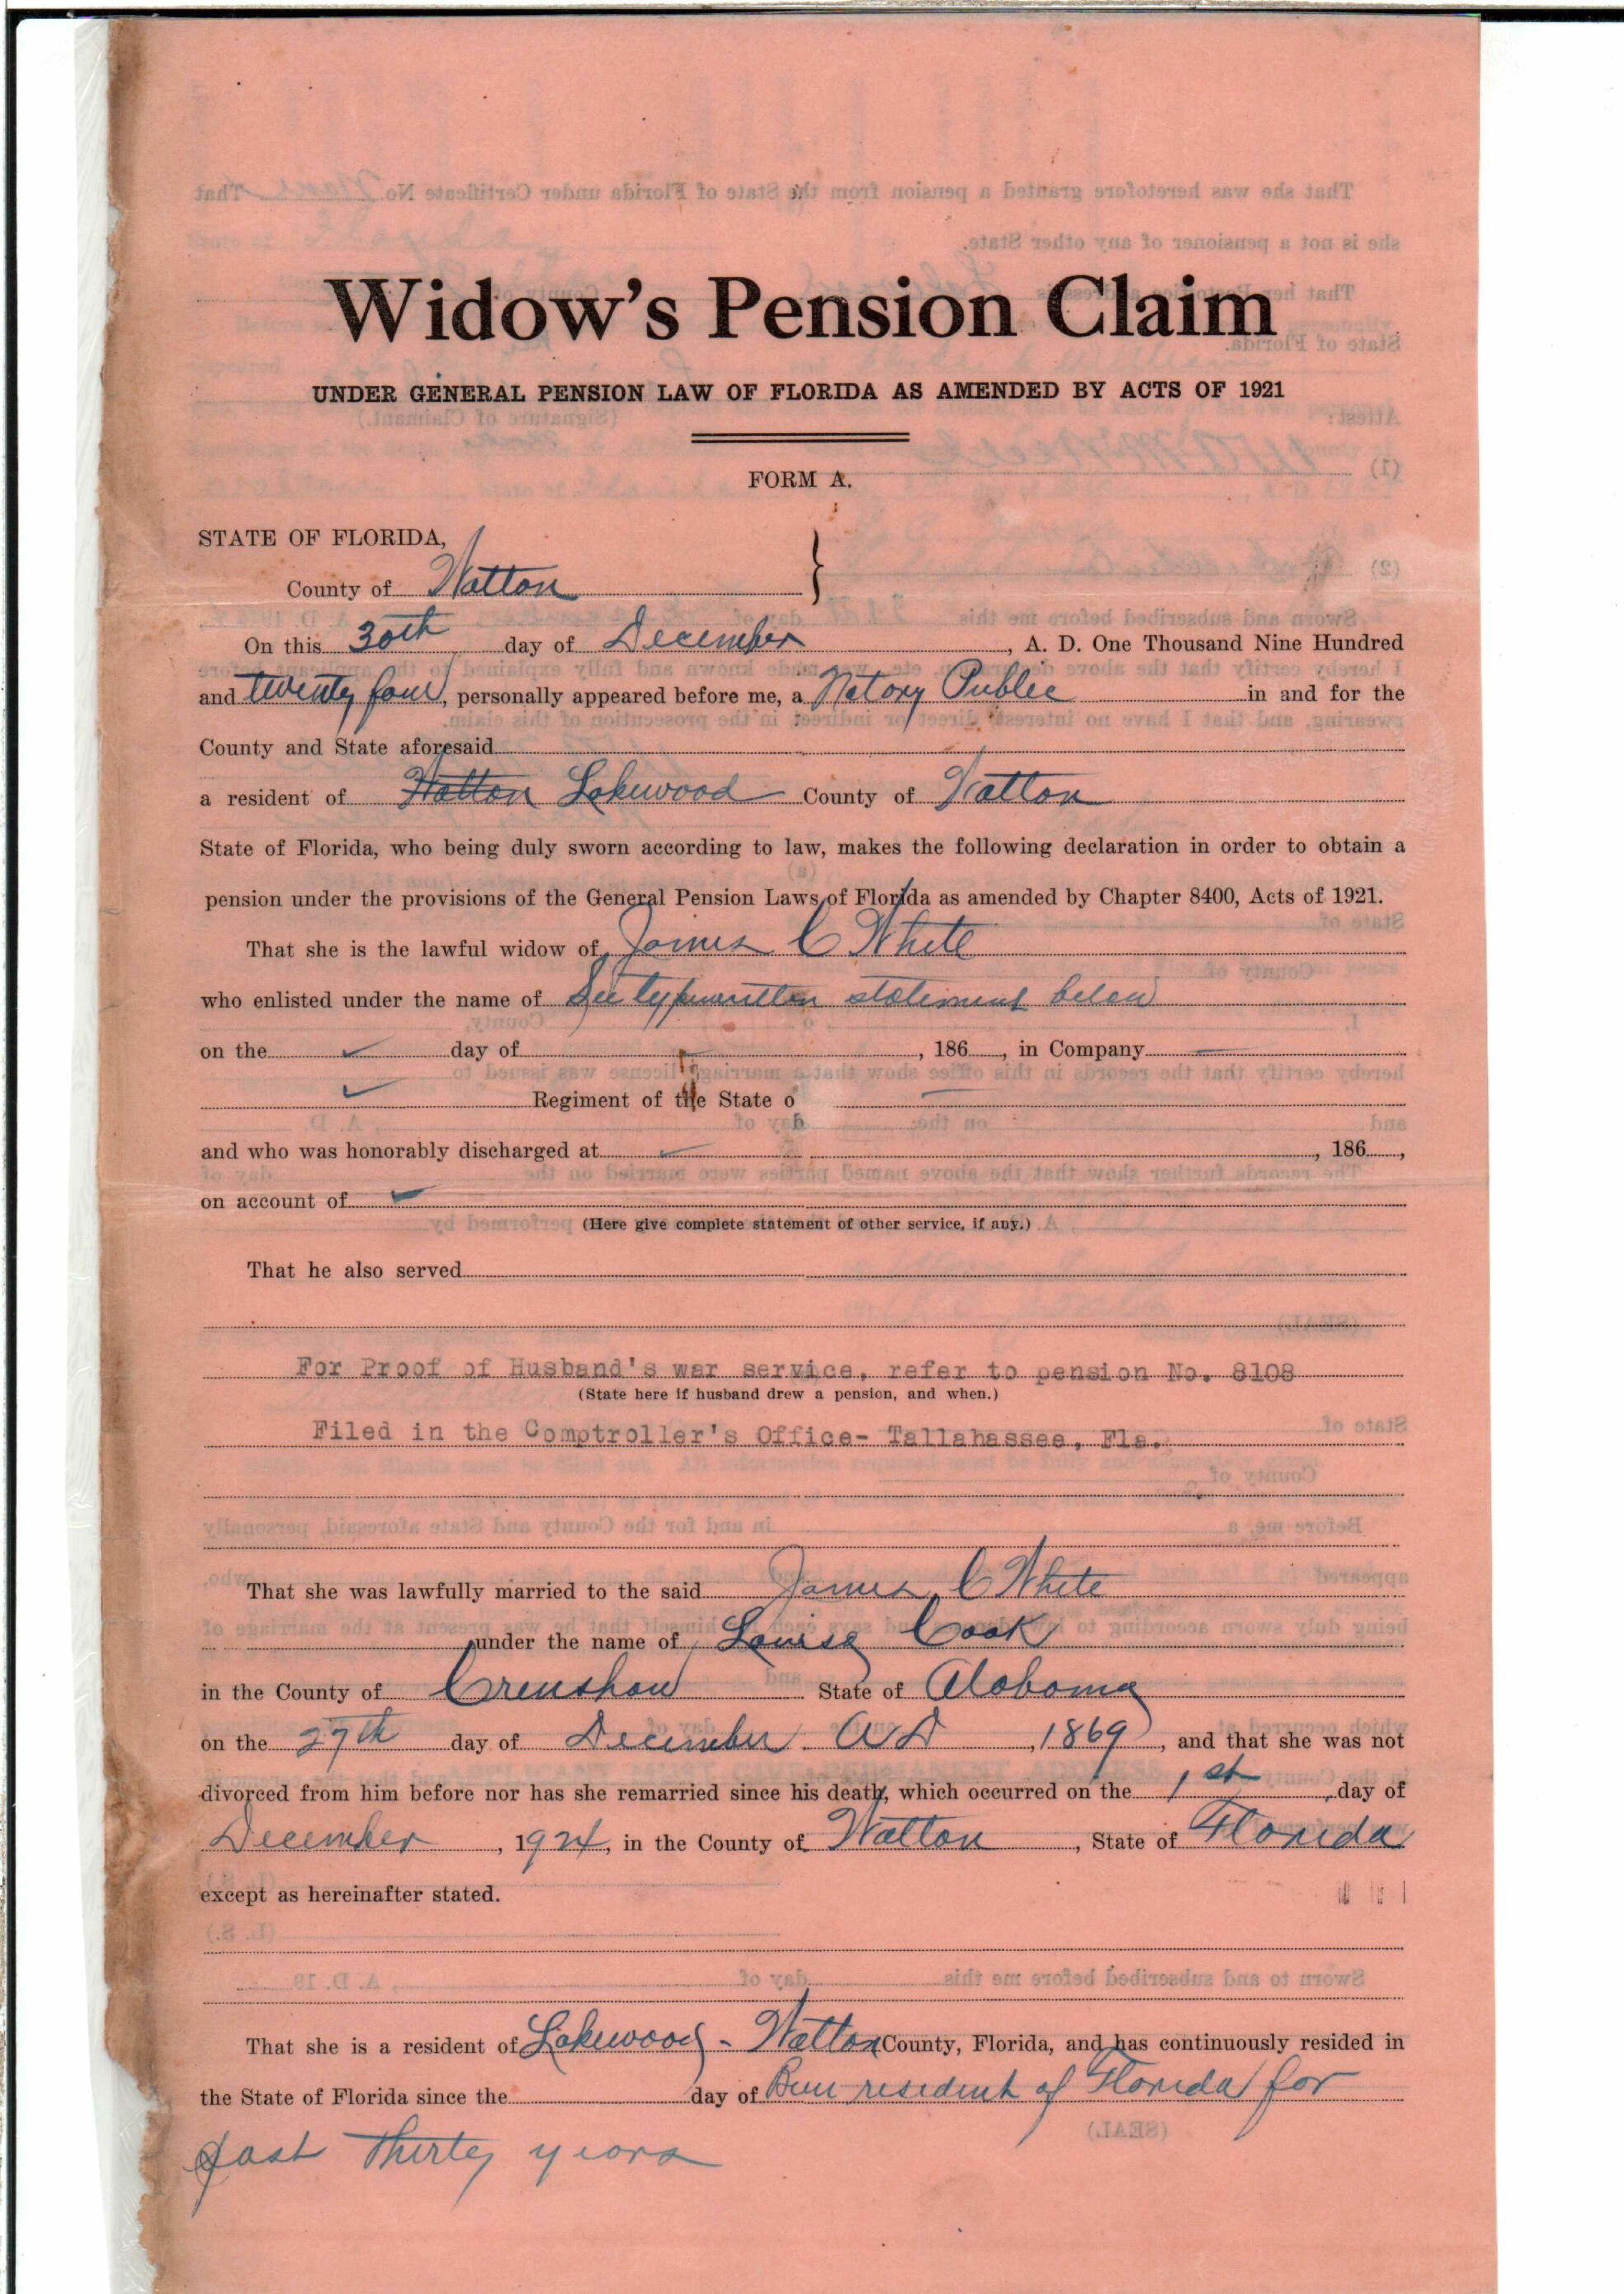 Widow's Pension Claim
UNDER GENERAL PENSION LAW OF FLORIDA AS AMENDED BY ACTS OF 1921
FORM A.
STATE OF FLORIDA,
County of Walton
On this 30th day of December, A. D. One Thousand Nine Hundred
and twenty four, personally appeared before me, a Notary Public in and for the
County and State aforesaid
a resident of Walton Lakewood County of Walton
State of Florida, who being duly sworn according to law, makes the following declaration in order to obtain a
pension under the provisions of the General Pension Laws of Florida as amended by Chapter 8400, Acts of 1921.
That she is the lawful widow of James C White
who enlisted under the name of See typewritten statement below
on the day of , 186 , in Company
Regiment of the State o
and who was honorably discharged at , 186 ,
on account of
(Here give complete statement of other service, if any.)
That he also served
For Proof of Husband's war service, refer to pension No. 8108
(State here if husband drew a pension, and when.)
Filed in the Comptroller's Office- Tallahassee, Fla.
That she was lawfully married to the said James C White
under the name of Louise Cook
in the County of Crenshaw State of Alabama
on the 27th day of December A D , 1869 , and that she was not
divorced from him before nor has she remarried since his death, which occurred on the 1st day of
December , 1924, in the County of Walton , State of Florida
except as hereinafter stated.
That she is a resident of Lakewood - Walton County, Florida, and has continuously resided in
the State of Florida since the day of Been resident of Florida for
past Thirty years